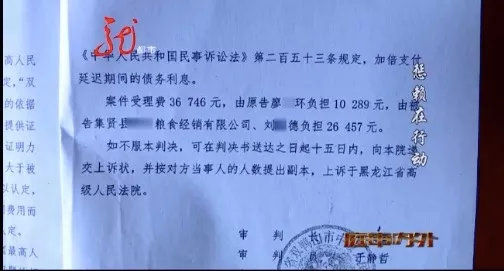 《中华人民共和国民事诉讼法》第二百五十三条规定，加倍支付
延迟期间的债务利息。
案件受理费36 746元，由原告廖 环负担10 289元，由被
告集贤县 粮食经销有限公司、刘 德负担26 457元。
如不服本判决，可在判决书送达之日起十五日内，向本院递
交上诉状，并按对方当事人的人数提出副本，上诉于黑龙江省高
级人民法院。
审 判
审 判 员 于静哲
高人民
定，“双
的依据
提供证
证明力
大于被
以认定，
费用而
定。
最高人
惩赖在行动
庭审内外